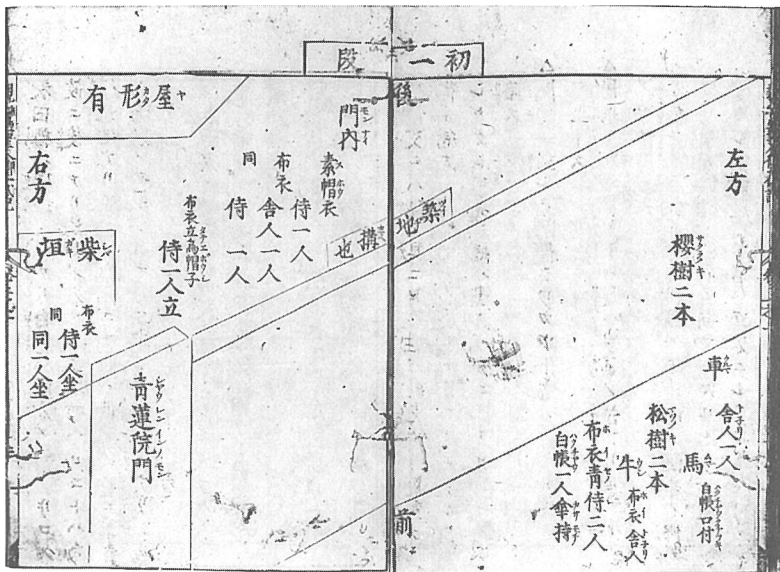 初一段
左方
櫻樹二本
車
舎人一人
馬
白帳口付
松樹二本
牛
布衣舎人
布衣青侍二人
白帳一人傘持
後
前
築地
構也
門内
素帽衣
侍一人
布衣
舎人一人
同
侍一人
布衣立烏帽子
侍一人立
屋形有
右方
柴垣
布衣
侍一人坐
同
同一人坐
青蓮院門